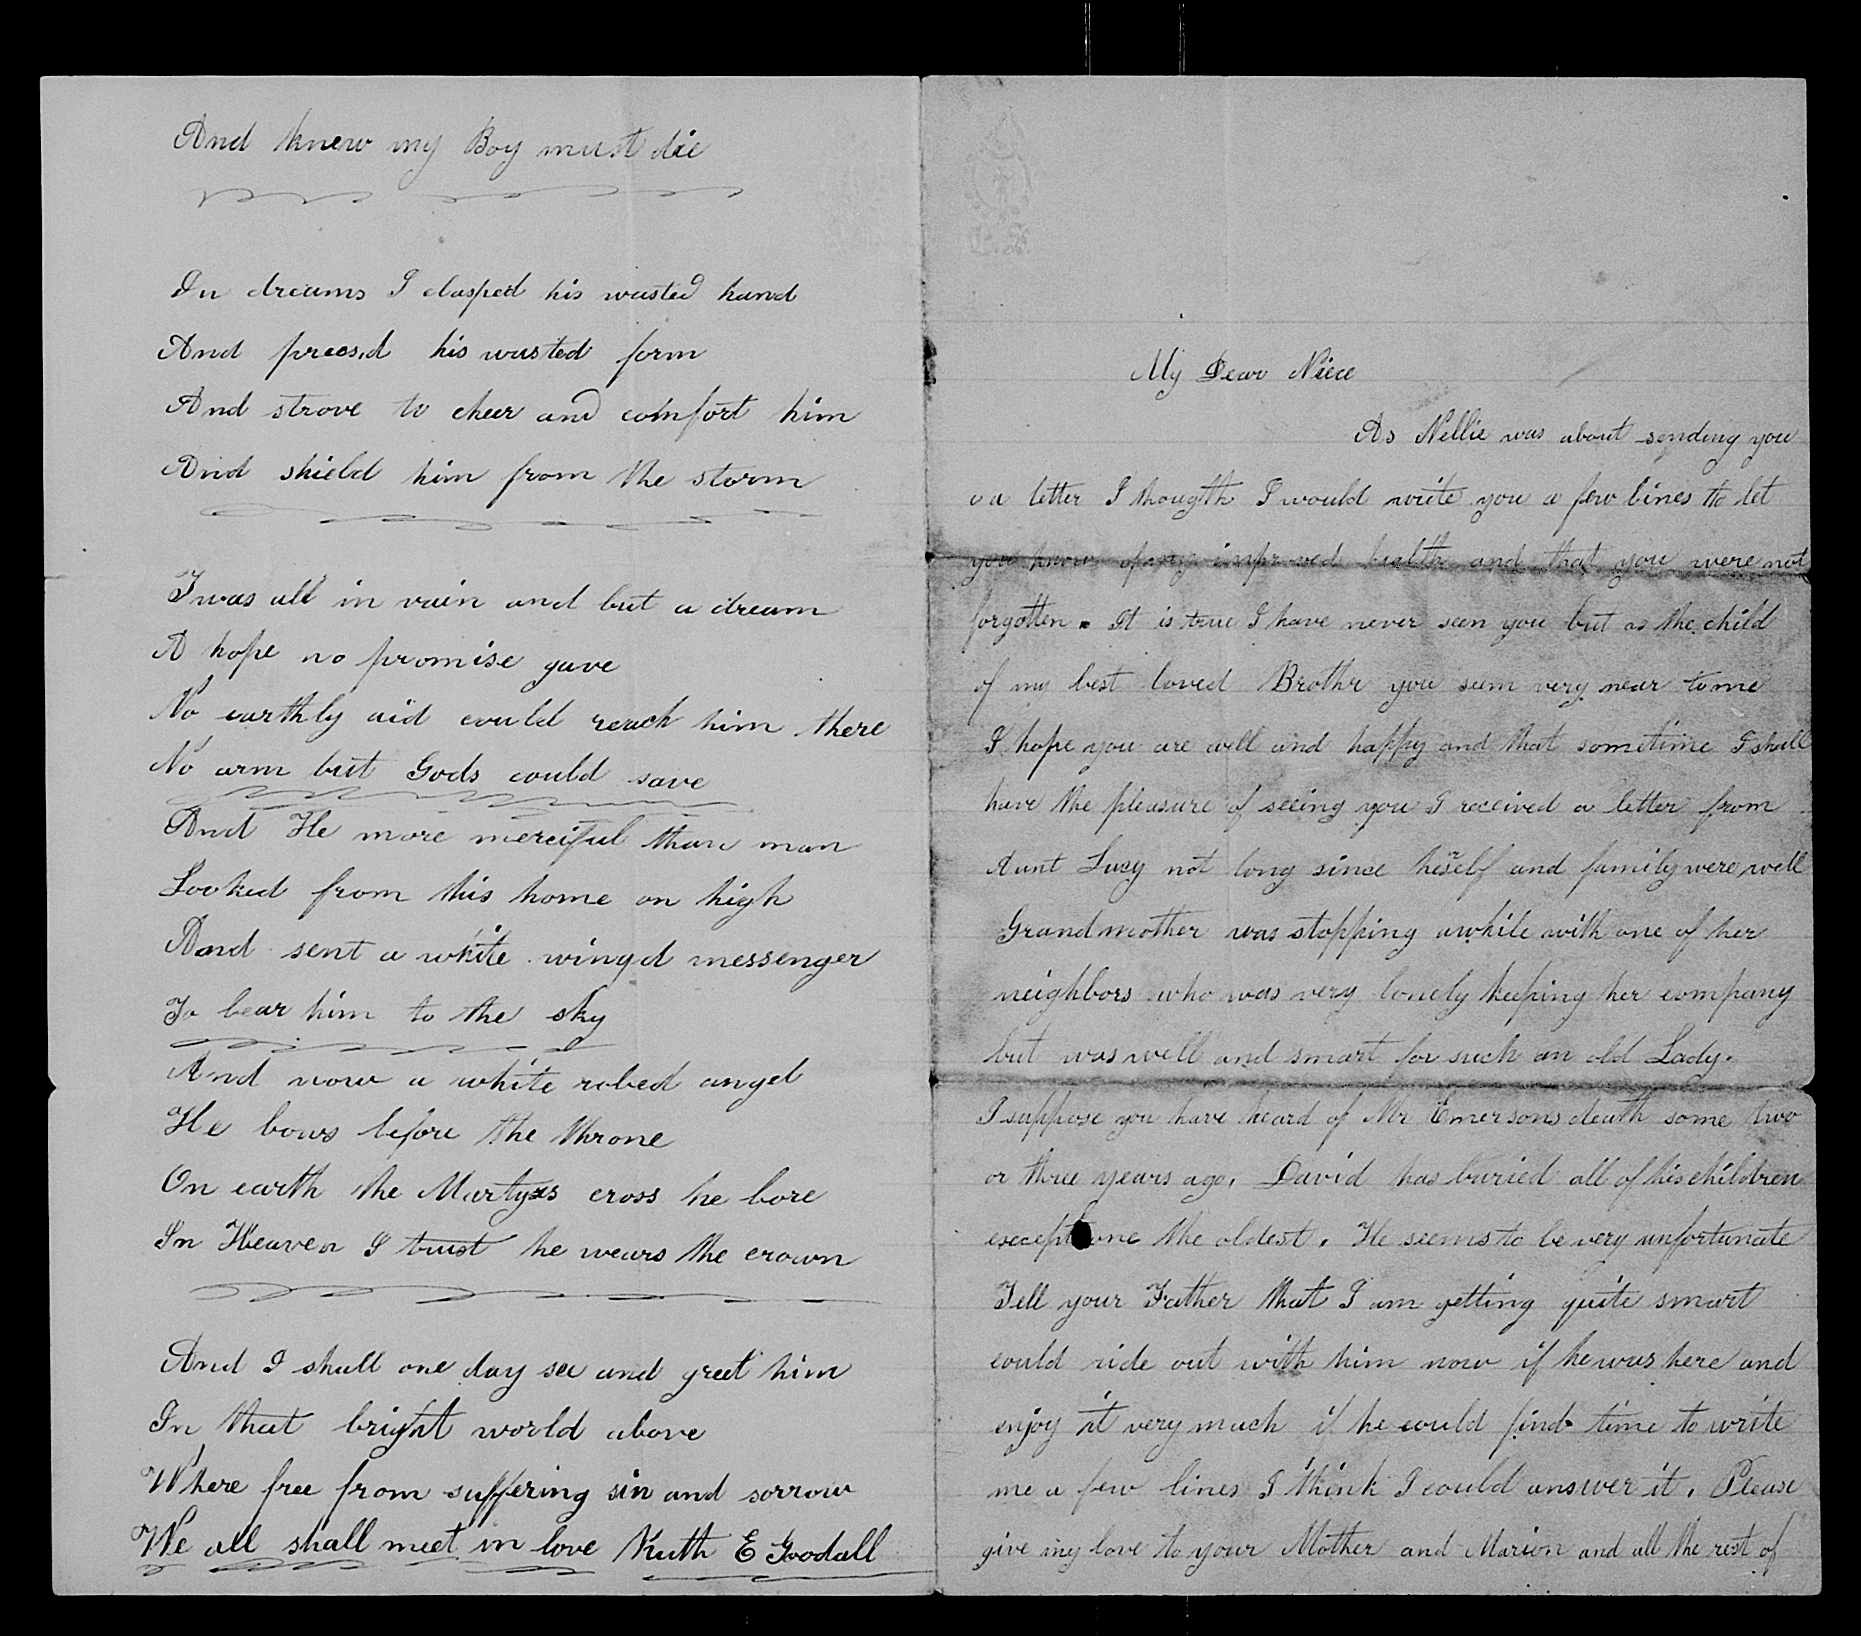 And knew my Boy must die
In dreams I clasped his wasted hand
And pressd his wasted form
And strove to cheer and comfort him
And shield him from the storm
Twas all in vain and but a dream
A hope no promise gave
No earthly aid could reach him there
No arm but Gods could save
And He more merciful than man
Looked from his home on high
And sent a white wingd messenger
To bear him to the sky
And now a white robed angel
He bows before the throne
On earth the Martyrs cross he bore
In Heaven I trust he wears the crown
And I shall one day see and greet him
In that bright world above
Where free from suffering sin and sorrow
We all shall meet in love Ruth E Goodall
My Dear Niece
As Nellie was about sending you
a letter I thougth I would write you a few lines to let
you know of my improved health and that you were not
forgotten. It is true I have never seen you but as the child
of my best loved Brothr you seem very near to me
I hope you are well and happy and that sometime I shall
have the pleasure of seeing you I received a letter from
Aunt Lucy not long since herself and family were well
Grandmother was stopping awhile with one of her
neighbors who was very lonely keeping her company
but was well and smart for such an old Lady.
I suppose you have heard of Mr Emersons death some two
or three years ago. David has buried all of his children
except one the oldest. He seems to be very unfortunate
Tell your Father that I am getting quite smart
could ride out with him now if he was here and
enjoy it very much if he could find time to write
me a few lines I think I could answer it. Please
give my love to your Mother and Marion and all the rest of